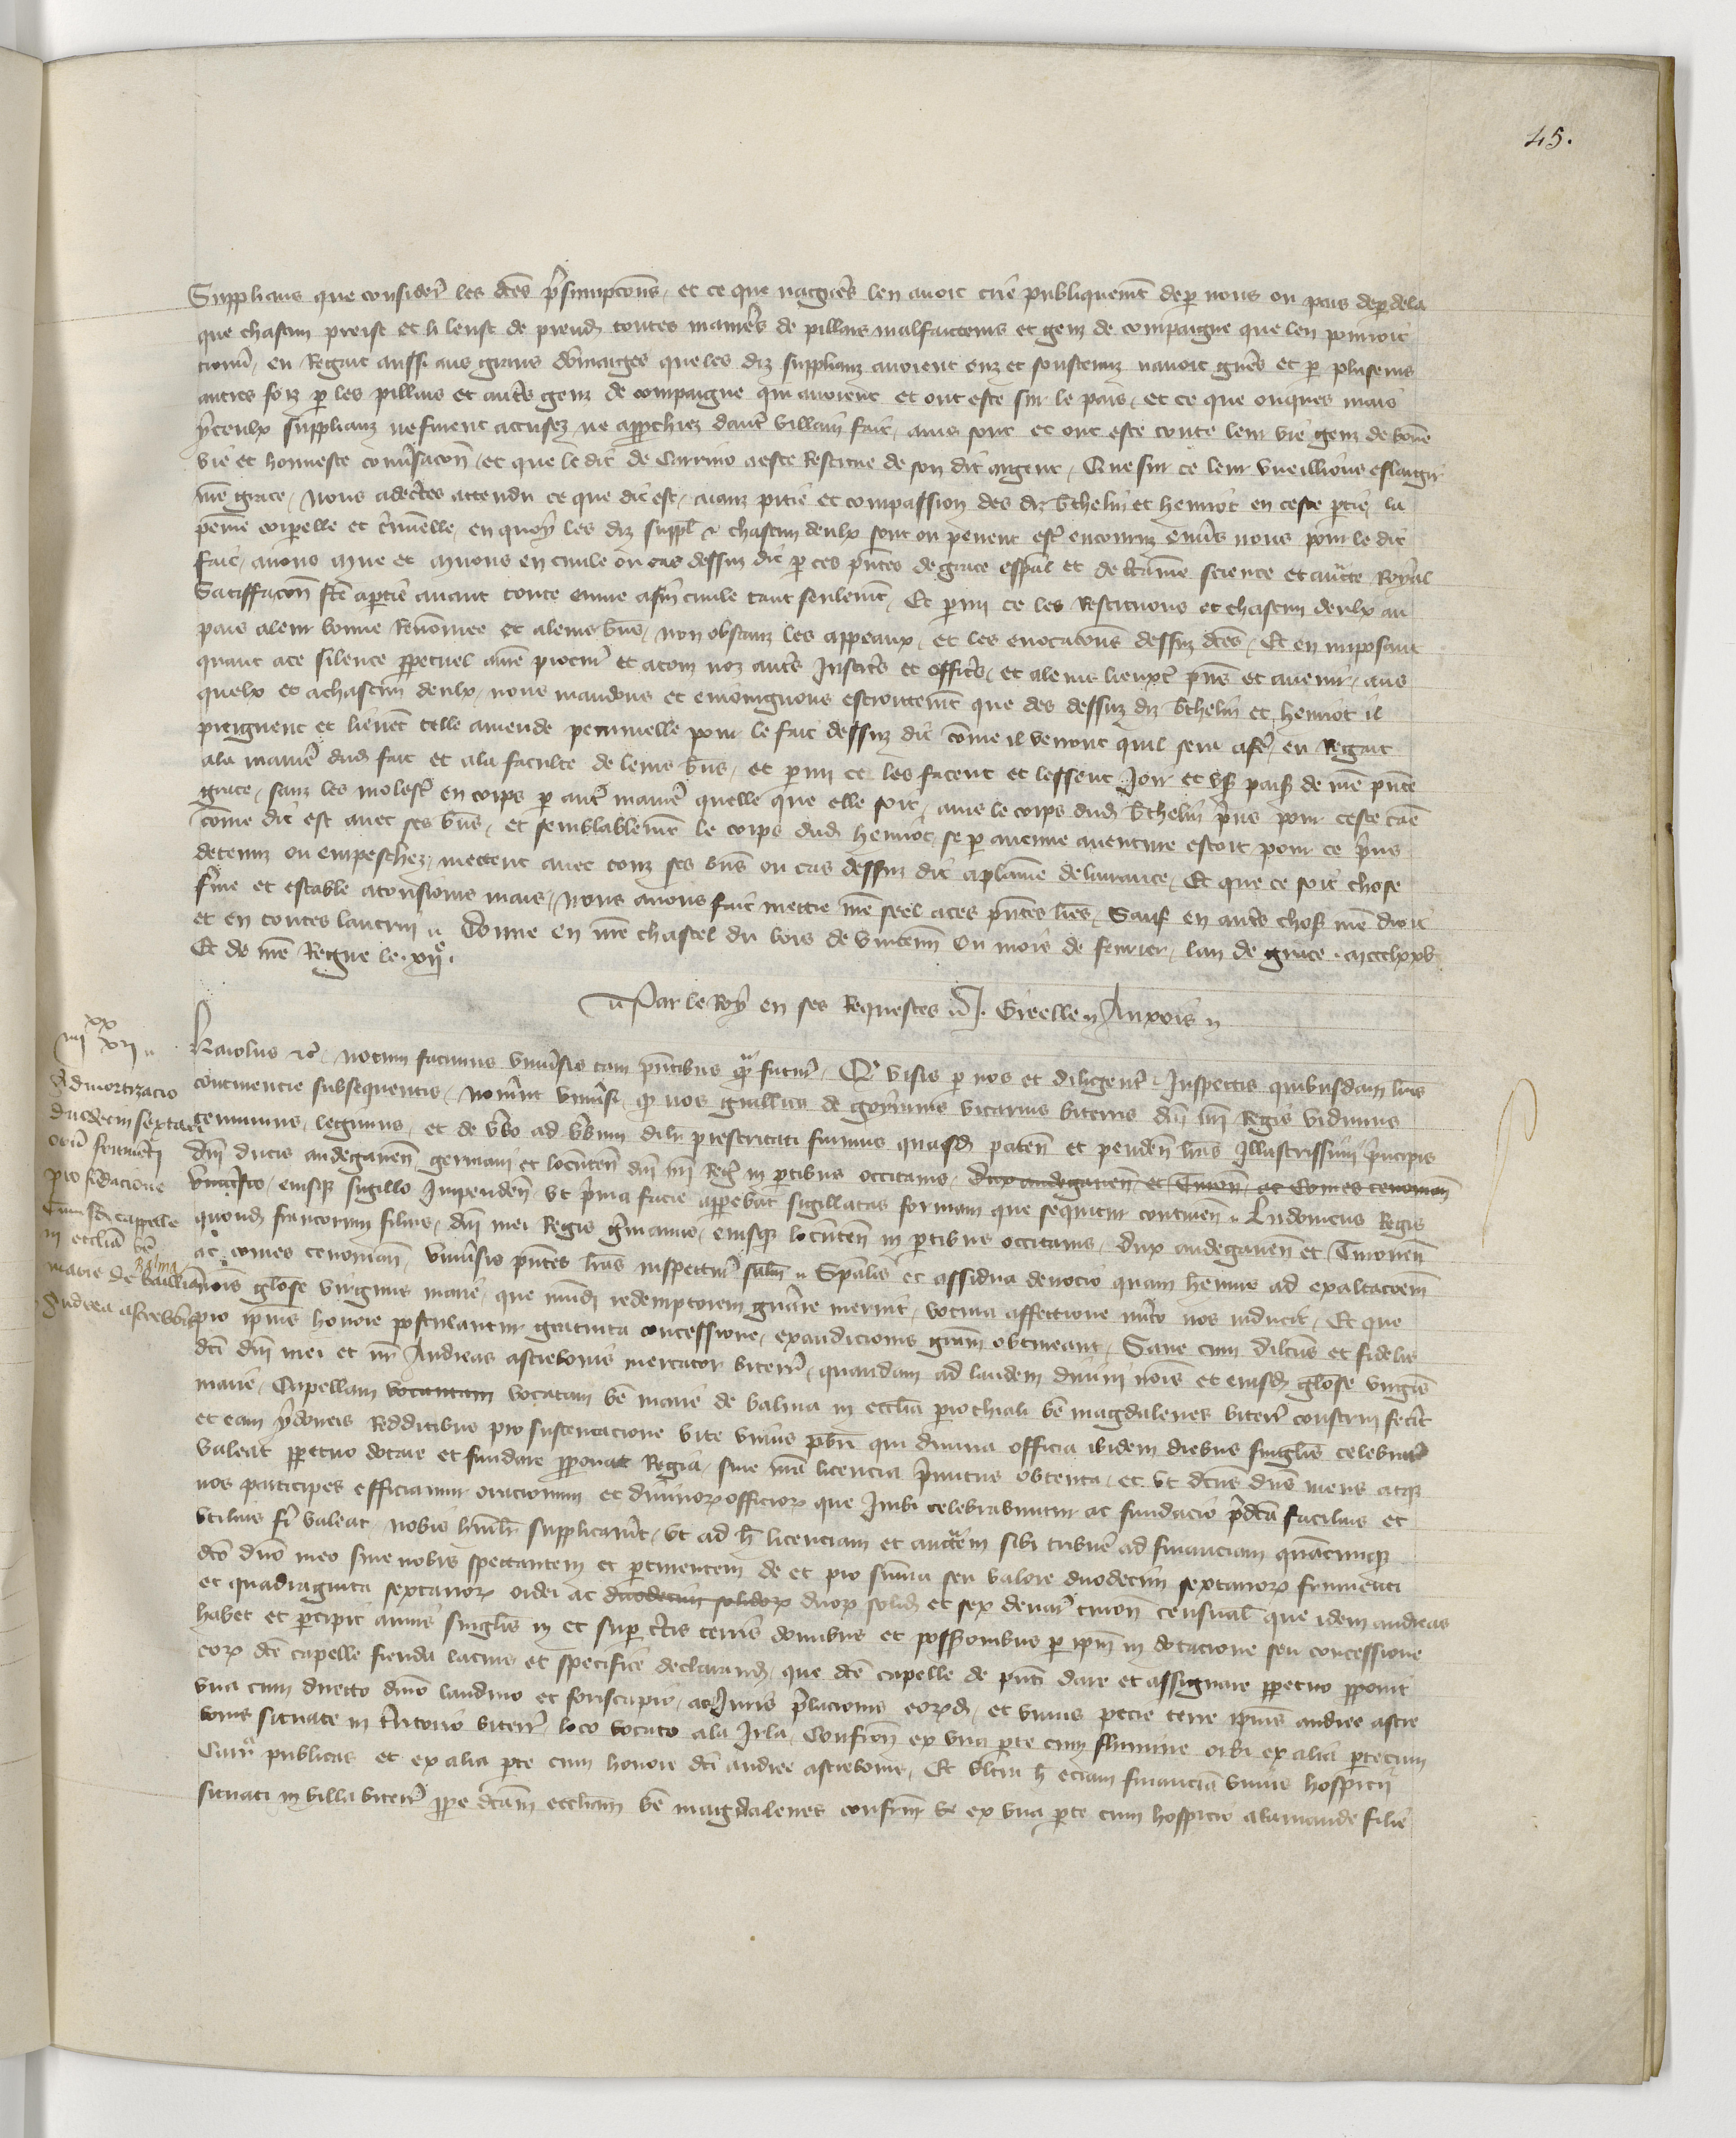 45.
Supplians que consider les dces p̃sumpcõns, et ce que nagueres len avoit crie publiquemẽt de par nous ou pais de par dela
que chascun preist et li leust de prendre toutes manieres de pillars malfaicteurs et gens de compaigne que len pourroit
trouver, en regart aussi aus grans domaiges que les diz supplianz avoient euz et soustenuz navoit gueres et par pluseurs
autres foiz par les pillars et autres genz de compaigne qui avoient et ont este sur le pais, et ce que onques mais
yceulx supplianz ne furent accusez ne approchiez dautre villain fait, ains sont et ont este toute leur vie genz de bone
vie et honneste conversacõn, et que le dit de Carrino a este restitue de son dit argent, que sur ce leur vueillions eslargir
nr̃e grace, nous adcertes attendu ce que dit est, aianz pitie et compassion des diz Bthelin et Henriot en ceste partie, la
peine corporelle et criminelle, en quoy les diz suppl et chascun deulx sont ou peuent estre encouruz envers nous pour le dit
fait, avons mue et muons en civile ou cas dessus dit par ces pñtes de grace esp̃al et de ctaine science et aucte royal
satisfacõn fce a partie avant toute euvre afin civile tant seulemẽt, Et parmi ce les restituons et chascun deulx au
pais a leur bonne renõmee et a leurs biens, non obstanz les appeaux, et les evocations dessuz dces, Et en imposant
quant a ce silence perpetuel a nr̃e procur̃ et a touz noz autres justiciers et officiers, et a leurs lieuxt pñs et avenir, aus
quelx et a chascun deulx, nous mandons et enioignons estroittemẽt que des dessuz diz Bthelin et Henriot il
preignent et lievent telle amende peccunielle pour le fait dessuz dit cõme il verront quil sera a faire, en regart
a la maniere dud fait et a la faculte de leurs biens, et parmi ce les facent et lessent joir et user paisib de nr̃e pñte
grace, sanz les molester en corps par autre maniere quelle que elle soit, ains le corps dud Bthelin prins pour ceste cãe
cõme dit est avec ses biens, et semblablemẽt le corps dud Henriot se par aucune aventure estoit pour ce prins
detenuz ou empeschez, mettent avec touz ses biens ou cas dessuz dit a plaine delivrance, Et que ce soit chose
ferme et estable a tousiours mais, nous avons fait mettre nr̃e seel a ces pñtes lr̃es, Sauf en autres choses nr̃e droit
et en toutes lautruy. Donne en nr̃e chastel du bois de Vincenñ Ou mois de fevrier, lan de grace mccclxxv.
Et de nr̃e regne le xije.
Par le Roy en ses Requestes. J. Greelle. Anxois
iiijxx xij
Admortizacio
duodecim sextari
orũ frumẽti
pro fũdacione
cuiusd̃ capelle
in ecclia bẽ
marie de Balma
Andrea Astrebonis
Karolus etc̃. notum facimus universis tam pñtibus q̃ futur̃, Qd visis per nos et diligenter inspectis quibusdam lr̃is
continentie subsequentis, Nov̾int univ̾si q̃ nos Guillũs de Gorinus vicarius Biterris dñi nr̃i Regis vidimus
tenuimus, legimus, et de v̾bo ad v̾bum dilir prescrutati fuimus quasd̃ patenñ et pendenñ lr̃as illustrissimi principis
dñi ducis Andegavenñ germani et locuntenñ dñi nr̃i Reg̃ in partibus occitanis, dux andegavenñ et Turonñ, ac Comes cenomañ
, eiusq̃ sigillo impendenñ, ut prima facie apparebat sigillatas formam que sequitur continenñ. Ludovicus Regis
quond̃ francorum filius, dñi mei Regis germanus, eiusq̃ locũtenñ in partibus occitanis, dux andegavenñ et Turonenñ
ac comes cenomanñ, univ̾sis pñtes lr̃as inspectur̃ salm̃. Sp̃alis et assidua devocio quam hẽmus ad exaltacõem
nois gl̃ose virginis marie, que mundi redemptorem gen̾are meruit, votiva affectione merito nos inducit, Et que
pro ip̃ius honore postulantur gratuita concessione, exaudicionis gr̃am obtineant, Sane cum dilcus et fidelis
dc̃i dñi mei et nr̃ Andreas Astrebonis mercator Biterr̃, quandam ad laudem divini nois et eiusd̃ gl̃ose virgis
marie, Capellam vocantam vocatam bẽ marie de Balma in eccl̃ia parrochiali bẽ magdalenes Biterr̃ construi fecit
et eam ydoneis redditibus pro sustentacione vite unius p̃bri qui divina officia ibidem diebus singl̃is celebrare
valeat perpetuo dotare et fundare proponat Regia, sive nr̃a licencia primitus obtenta, et ut dcus dñs meus atq̃
nos participes efficiamur oracionum et divinor̃ officior̃ que inibi celebrabuntur ac fundacio p̃dc̃a facilius et
utilius fi̾ valeat, nobis hu̾ilr supplicav̾it, ut ad h̃ licenciam et auctem sibi tribuẽ ad financiam quãcumq̃
dc̃o dñο meo sive nobis spectantem et pertinentem de et pro sum̃a seu valore duodecim sextarior̃ frumenti
et quadraginta sextarior̃ ordei ac duodecim solidor̃ duor̃ solid̃ et sex denar̃ turon̾ censual̃ que idem Andreas
habet et percipit annis singl̃is in et super c̃tis terris domibus et possessionibus per ip̃m in dotacione seu concessione
eor̃ dc̃e capelle fienda latius et specifice declarand̃, que dc̃e capelle de pñti dare et assignare perpetuo proponit
una cum directo dño laudimio et foriscapio, ac juris prelacionis eorũd̃, et unius pecie terre ip̃ius Andree Astre
bonis situate in territorio Biterr̃ loco vocato ala Irla, Confronñ ex una parte cum flumine orbi ex alia parte cum
 publicas et ex alia parte cum honore dc̃i Andree Astrebonis, Et ultra h̃ eciam financiã unius hospicii
situati in villa Biterr̃ prope dc̃am eccl̃iam bẽ magdalenes confronñ ex una parte cum hospicio alamande filie